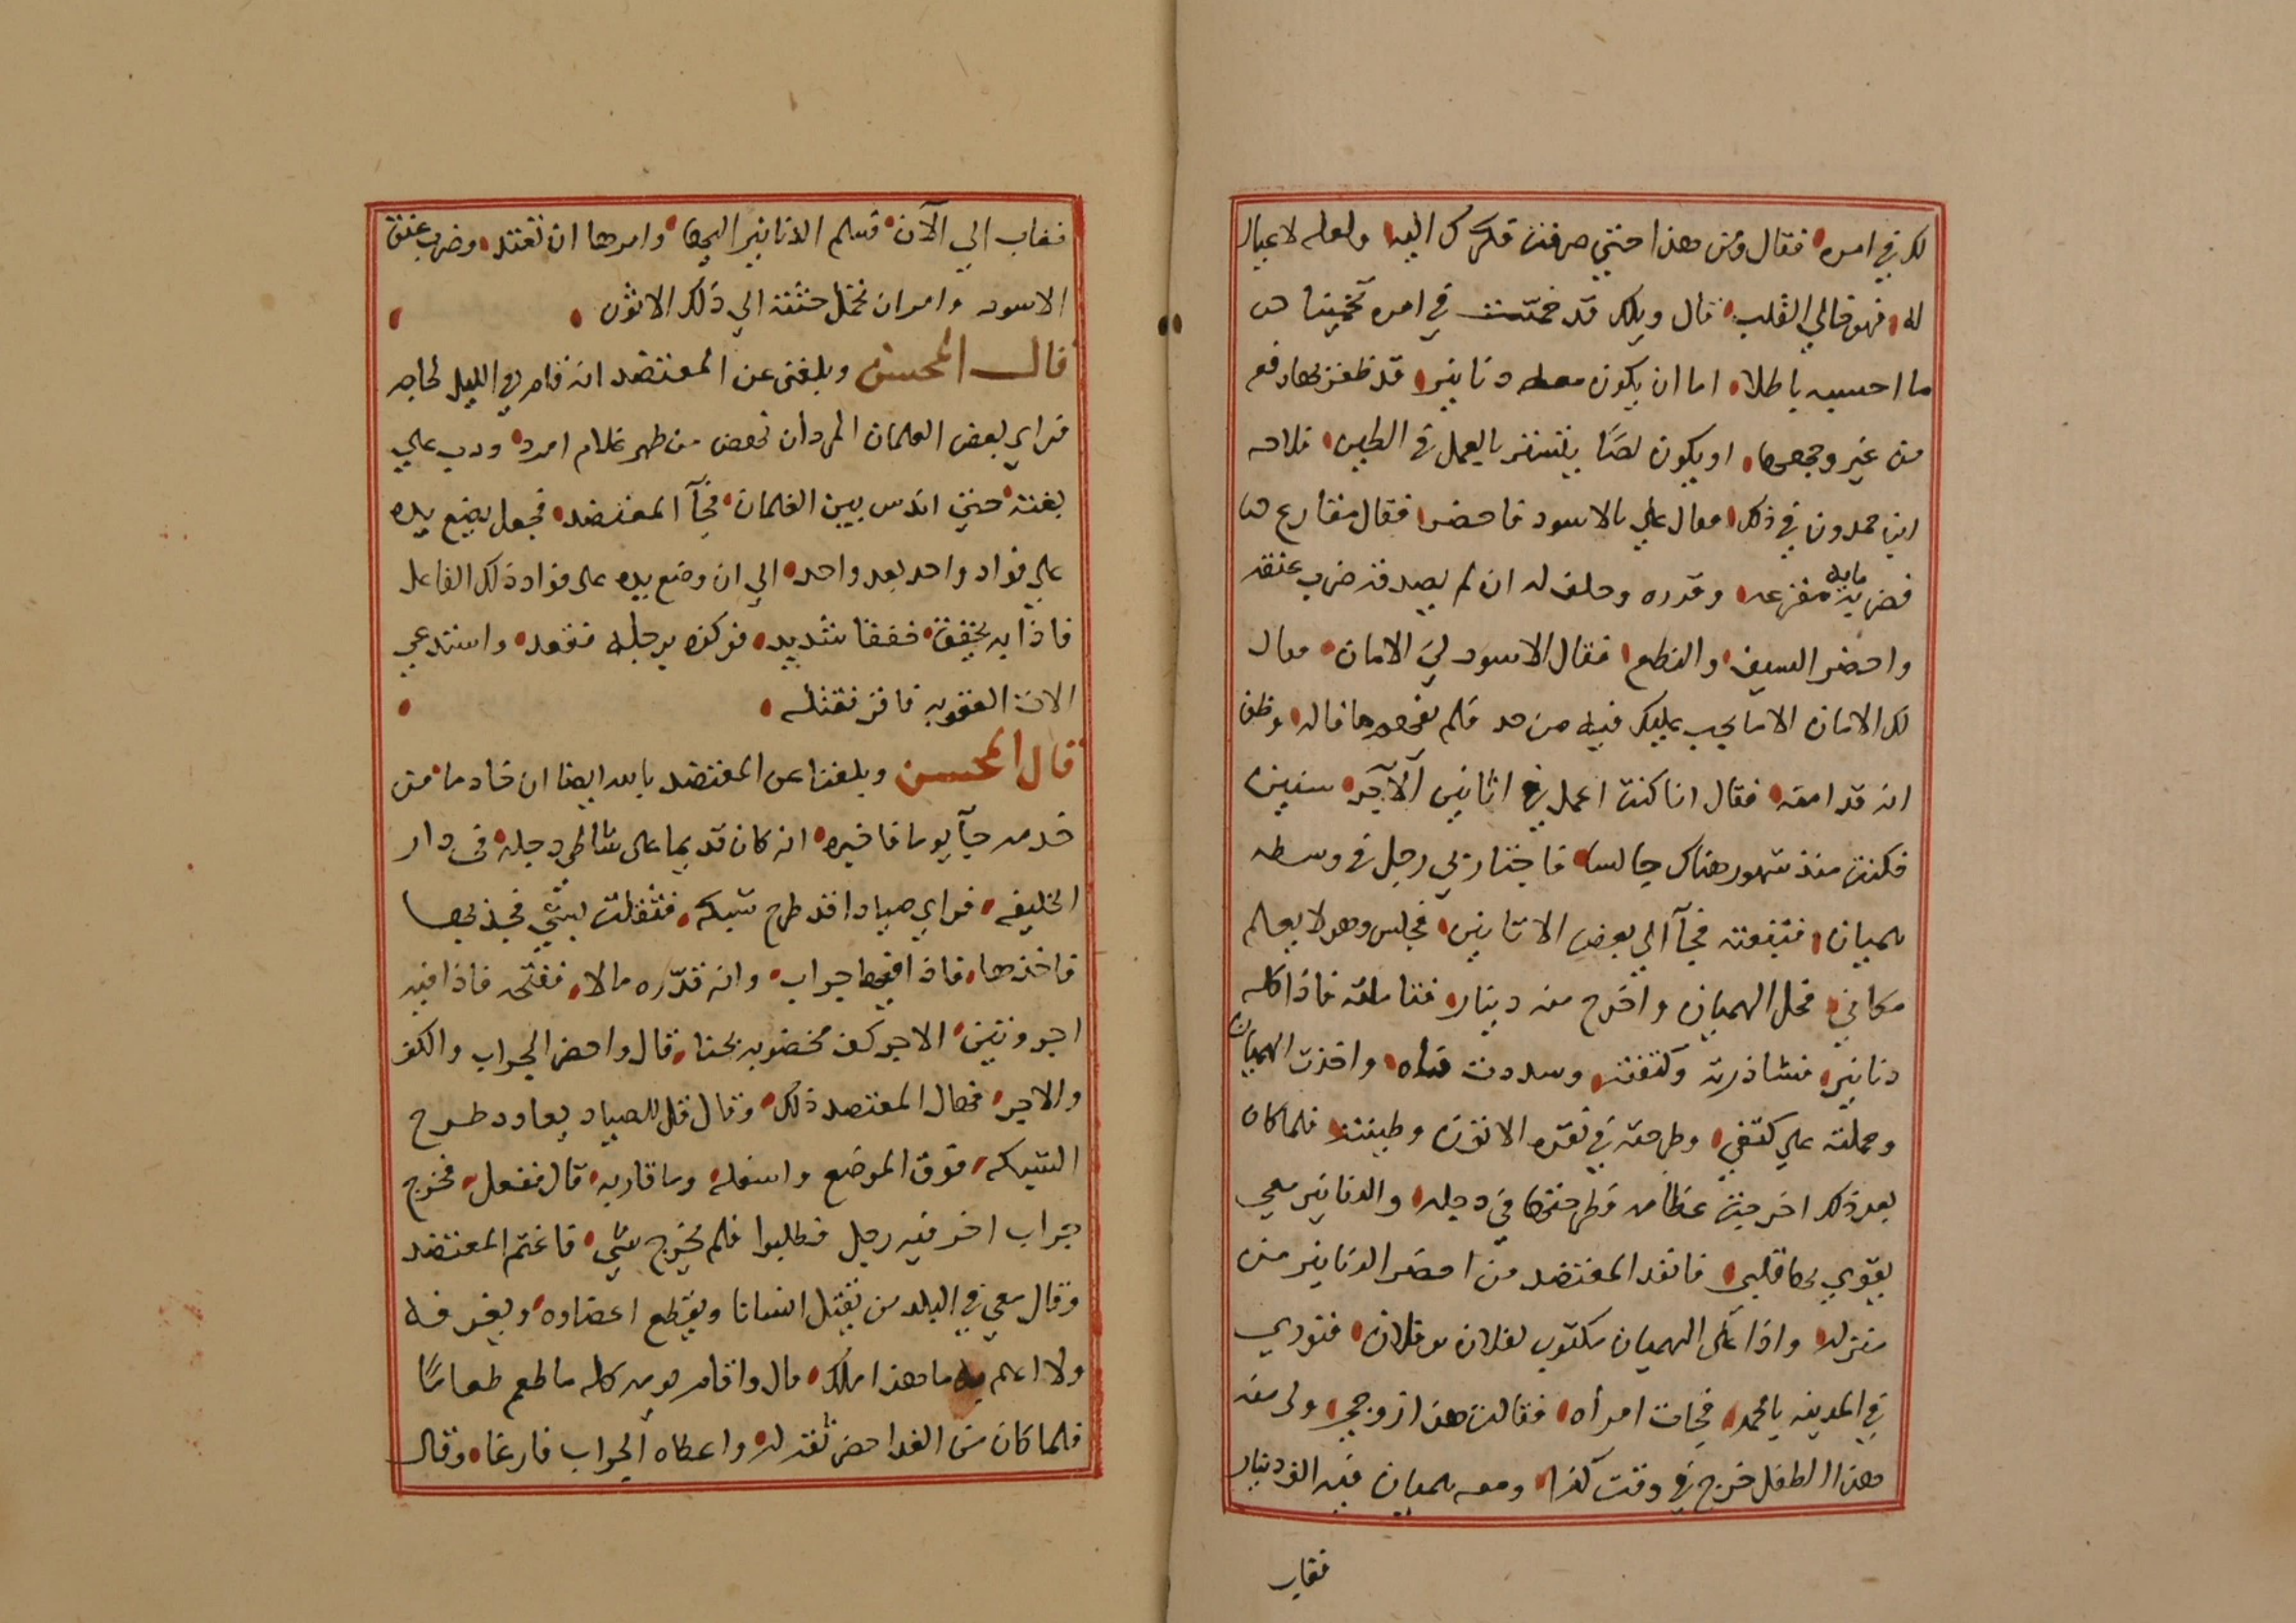 لك في امره فقال ومن هذا حتي صرفت فكرك اليه ولعله لا عيال
له فهو خالي القلب قال ويلك قد خمنت في امره تخمينا
ما احسبه باطلا اما ان يكون معه دنانير قد ظفر بها دفعه
من غير وجهها او يكون لصا يتستر بالعمل في الطين فلاحه
ابن حمدون في ذلك فقال علي بالاسود فاحضر فقال مقارع
فضربه مايه مقرعه وقرره وحلف له ان لم يصدقه ضرب عنقه
واحضر السيف والنطع فقال الاسود لي الامان فقال
لك الامان الا ما يجب عليك فيه من حد فلم يفهم ما قاله وظن
انه قد امنه فقال انا كنت اعمل في اتانين الآجر سنين
فكنت منذ شهور هناك جالسا فاجتاز بي رجل في وسطه
هميان فتبعته فجآ الي بعض الاتانين فجلس وهو لا يعلم
مكاني فحل الهميان واخرج منه دينار فتاملته فاذا كله
دنانير فثاورته وكتفته وسددت فاه واخذت الهميان
وحملته علي كتفي وطرحته في نقره الاتون وطينته فلما كان
بعد ذلك اخرجت عظامه فطرحتها في دجله والدنانير معي
يقوي بها قلبي فانفد المعتضد من احضر الدنانير من
منزله واذا على الهميان مكتوب لفلان بن فلان فنودي
في المدينه باسمه فجات امرأه فقالت هذا زوجي ولي منه
هذا الطفل خرج في وقت كذا ومعه هميان فيه الف دينار
فغاب
فغاب الي الآن فسلم الدنانير اليها وامرها ان تعتد وضرب عنق
الاسود وامر ان تحمل جثته الي ذلك الاتون
قال المحسن وبلغني عن المعتضد انه قام في الليل لحاجه
فراي بعض الغلمان المردان نهض من ظهر غلام امرد ودب علي
بغتة حتي اندس بين الغلمان فجآ المعتضد فجعل يضع يده
علي فواد واحد بعد واحد الي ان وضع يده على فواد ذلك الفاعل
فاذا به يخفق خفقا شديد فركزه برجله فقعد واستدعي
الات العقوبه فاقر فقتله
قال المحسن وبلغنا عن المعتضد بالله ايضا ان خادما من
خدمه جآ يوما فاخبره انه كان قديما على شاطي دجله في دار
الخليفه فراي صيادا قد طرح شبكه فثقلت بشي فجذبها
فاخذها فاذا فيها جراب وانه قدره مالا ففتحه فاذا فيه
اجر وبين الاجر كف مخضوبه بحنا قال واحضر الجراب والكف
والاجر فهال المعتضد ذلك وقال قل للصياد يعاود طرح
الشبكه فوق الموضع واسفله وما قاربه قال ففعل فخرج
جراب اخر فيه رجل فطلبوا فلم يخرج شي فاغتم المعتضد
وقال معي في البلد من يقتل انسانا ويقطع اعضاوه ويغرقه
ولا اعلم به ما هذا ملك قال واقام يومه كله ما طعم طعاما
فلما كان من الغد احضر ثقة له واعطاه الجراب فارغا وقال